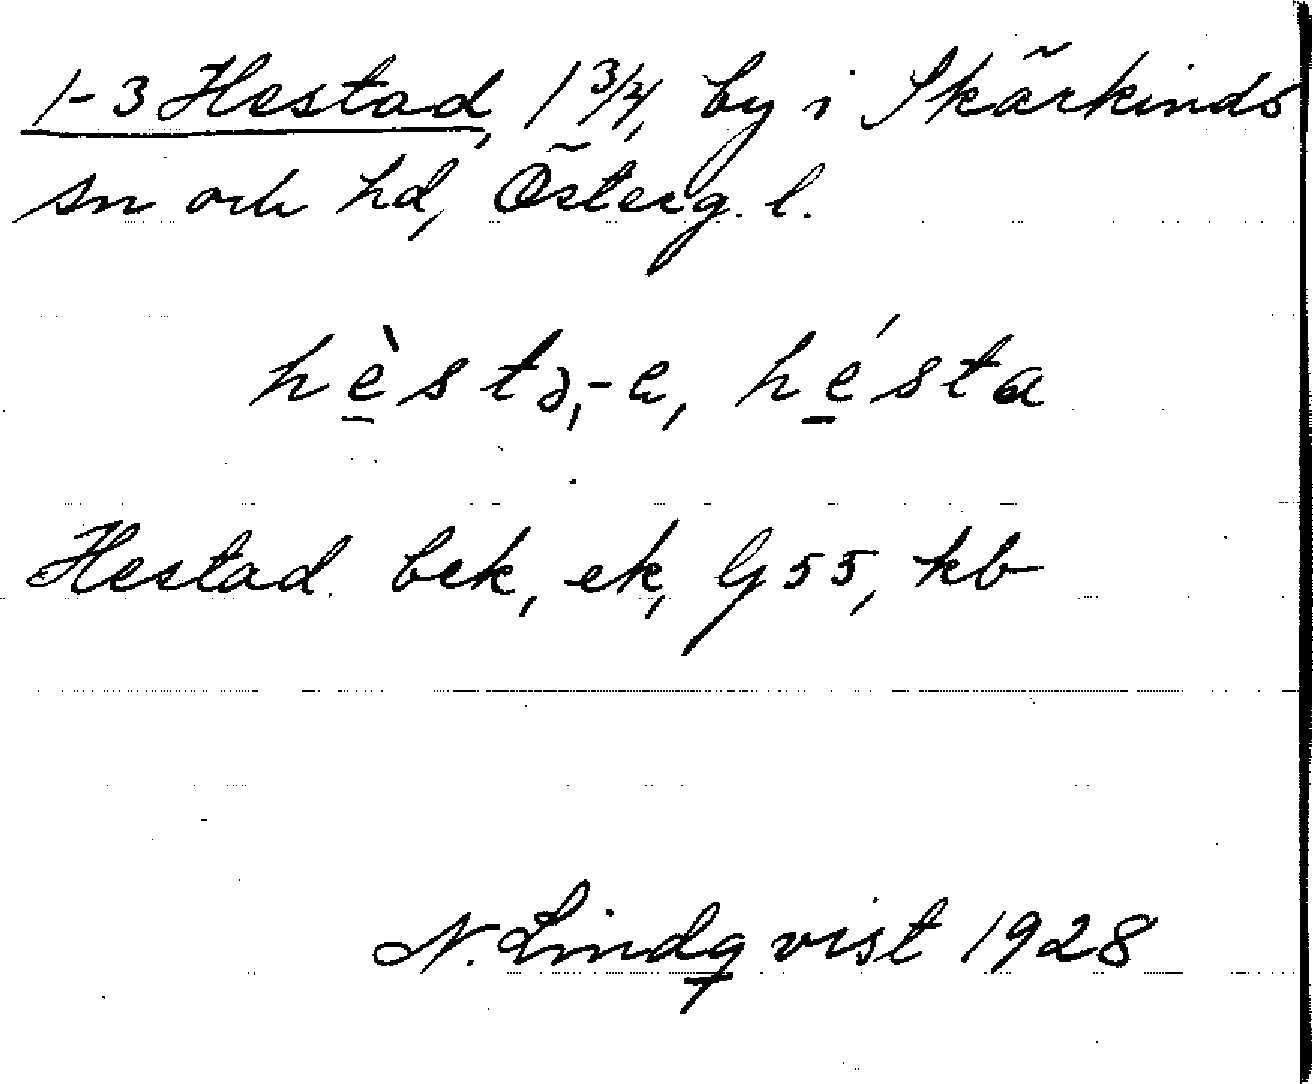 1-3 Hestad, 1 3/4, by i Skärkinds
sn och hd, Österg. l.
hèstə, -e, hésta
Hestad. bek, ek, G 55, kb
N. Lindqvist 1928